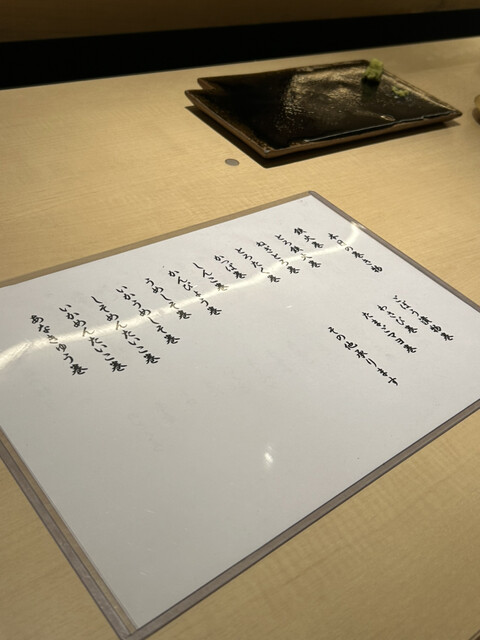 本日の巻き物
鉄火巻
とろ鉄火巻
ねぎとろ巻
とろたく巻
かっぱ巻
しんこ巻
かんぴょう巻
うめしそ巻
いかうめしそ巻
しそめんたいこ巻
いかめんたいこ巻
あなきゅう巻
ごぼう漬物巻
わさび巻
たまごマヨ巻
その他承ります